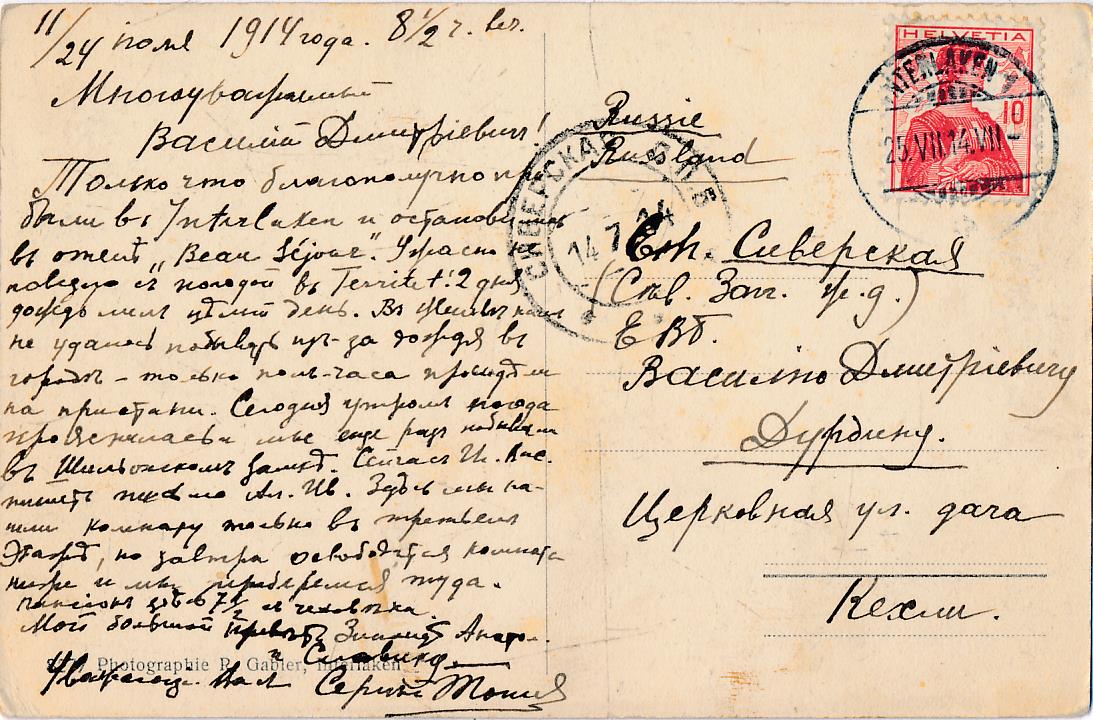 11/24 июля 1914 года. 8 1/2 ч. веч.
Многоуважаемый
Василій Дмитріевичъ!
Только что благополучно при-
были въ Interlaken и остановились
въ отелѣ „Beau Séjour". Ужасно не
повезло съ погодой въ Territet! 2 дня
дождь лилъ цѣлый день. Въ Женевѣ намъ
не удалось побывать из-за дождя въ
городѣ – только полъ-часа просидѣли
на пристани. Сегодня утромъ погода
прояснилась и мы еще разъ побывали
въ Шильонскомъ замкѣ. Сейчасъ
пишетъ письмо Ал. Ив. Здѣсь мы на-
шли комнату только въ третьемъ
этажѣ, но завтра освободится комната
ниже и мы переберемся туда.
Пансіонъ здѣсь 7 1/2 съ человѣка.
Мой большой привѣтъ Зинаидѣ Анатол.
и
Уважающ. Васъ Сергѣй
Photographie R. Gabler, Interlaken
HELVETIA
10
INTERLAKEN 1
25.VII.14.VII
СИВЕРСКАЯ
14 7 14
Russie
Russland
Ст. Сиверская
(Сѣв. Зап. ж.д.)
ЕВБ.
Василію Дмитріевичу
Дурдину.
Церковная ул. дача
Кехли.